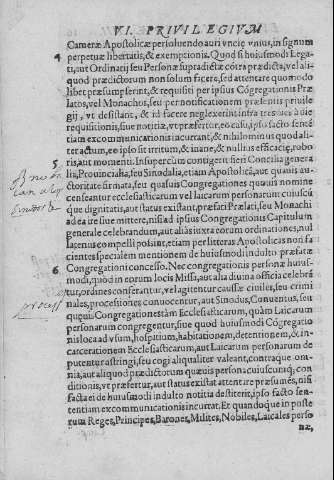 VI. PRIVILEGIVM
Cameræ Apostolicæ persoluendo auri vncię vnius, in signum
perpetuæ libertatis, & exemptionis. Quod si huiusmodi Lega-
ti, aut Ordinarij seu Personæ supradictæ cōtra prædicta, vel ali-
quod prædictorum non solum facere, sed attentare quomodo
libet præsumpserint, & requisiti per ipsius Cōgregationis Præ
latos, vel Monachos, seu per notificationem præsentis priuile
gij, vt desistant, & id facere neglexerint infra tres dies à die
requisitionis, siue notitiæ, vt præfertur, eo casu, ipso facto senté
tiam excommunicationis incurrant, & nihilominus quod ali-
ter actum, eo ipso sit irritum, & inane, & nullius efficacię, robo-
5 ris, aut momenti. Insuper cum contigerit fieri Concilia genera
lia, Prouincialia, seu Sinodalia, etiam Apostolica, aut quauis au-
ctoritate firmata, seu quasuis Congregationes quouis nomine
censeantur ecclesiasticarum vel laicarum personarum cuiuscũ
que dignitatis, aut status existāt, præfati Prælati, seu Monachi
ad ea ire siue mittere, nisi ad ipsius Congregationis Capitulum
generale celebrandum, aut alias iuxta eorum ordinationes, nul
latenus compelli possint, etiam per litteras Apostolicas non fa
cientes specialem mentionem de huiusmodi indulto præfatæ
6 Congregationi concesso. Nec congregationes personæ huius-
modi, quòd in eorum locis Missa, aut alia diuina officia celebrē
tur, ordines conferantur, vel agitentur caussæ ciuiles, seu crimi
nales, processiones conuocentur, aut Sinodus, Conuentus, seu
quęuis Congregationes tàm Ecclesiasticarum, quàm Laicarum
personarum congregentur, siue quod huiusmodi Cōgregatio
nis loca ad vsum, hospitium, habitationem, detentionem, & in-
carcerationem Ecclesiasticarum, aut Laicarum personarum de
putentur astringi, seu cogi aliqualiter valeant, contraque om-
nia, aut aliquod prædictorum quæuis persona cuiuscunq; con-
ditionis, vt præfertur, aut status existat attentare præsumēs, nisi
facta ei de huiusmodi indulto notitia destiterit, ipso facto sen-
tentiam excommunicationis incurrat. Et quandoque in poste
rum Reges, Principes, Barones, Milites, Nobiles, Laicales perso
næ,